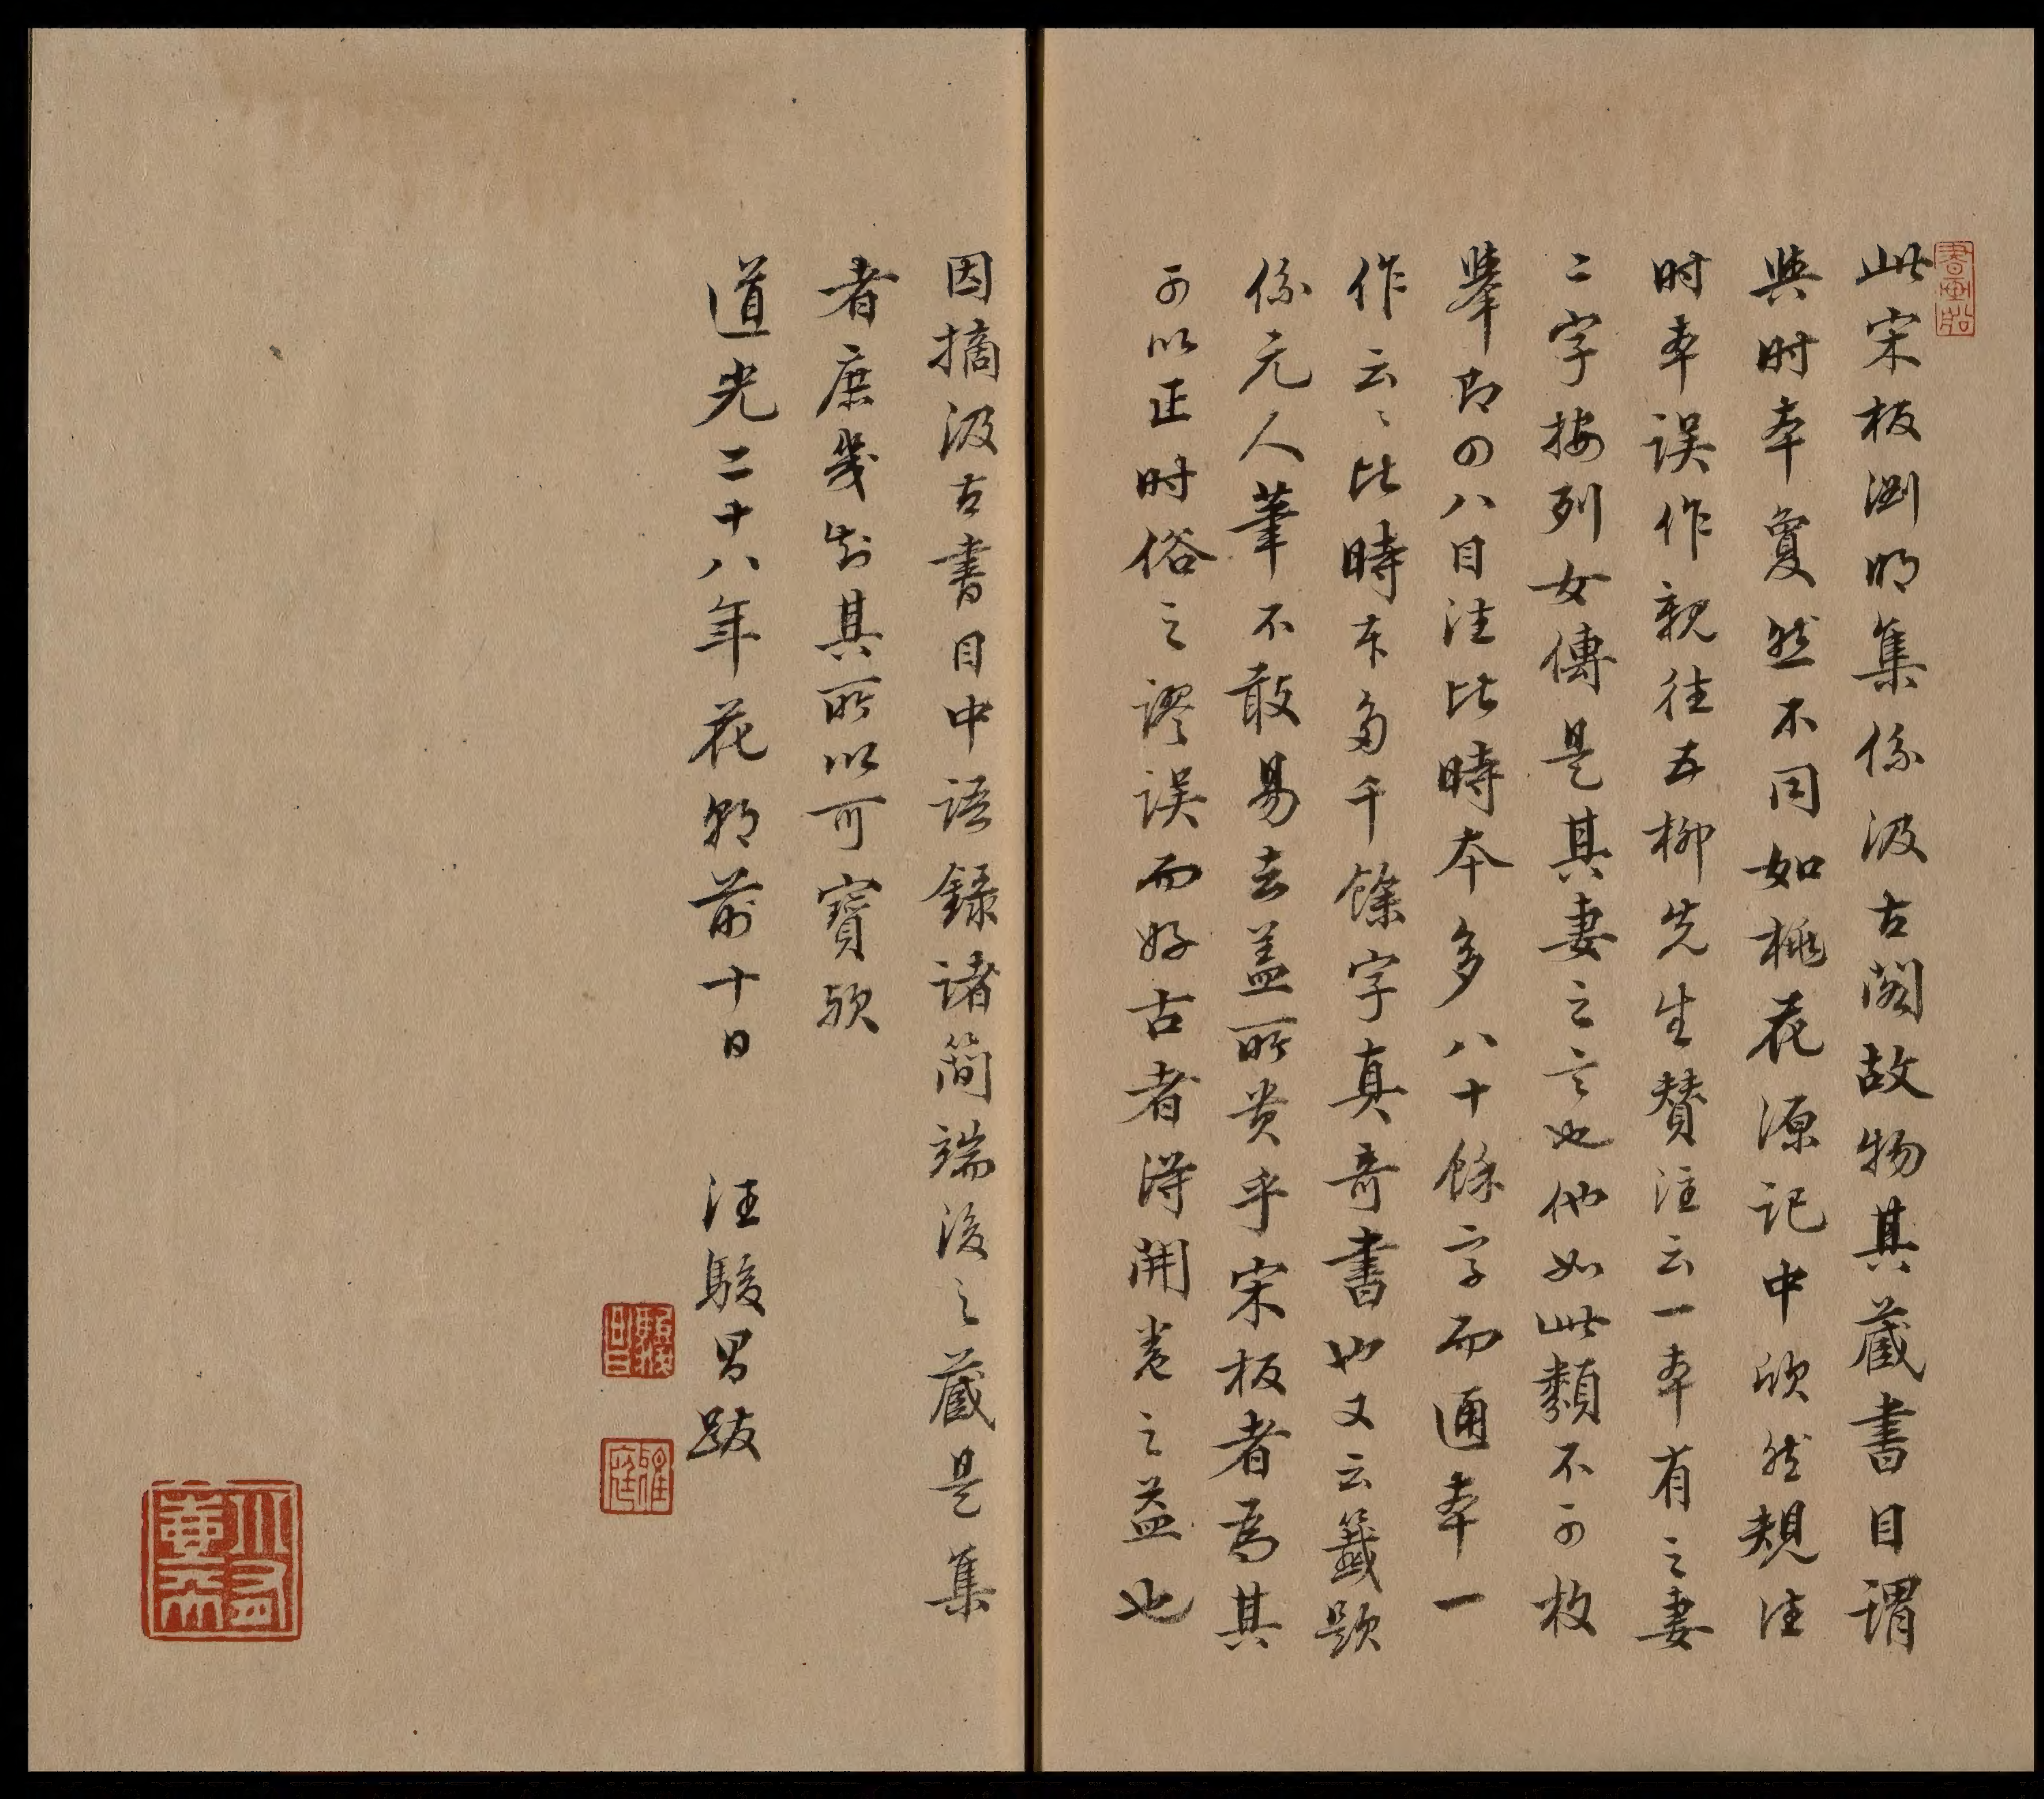 此宋板渊明集係汲古閣故物其藏書目謂
與时本夐然不同如桃花源记中欣然規注
时本误作親往五柳先生賛注云一本有之妻
二字按列女傳是其妻之言也他如此類不可枚
舉即四八目注比時本多八十餘字而通本一
作云云比時本多千餘字真奇書也又云籤题
係元人筆不敢易去盖所贵乎宋板者為其
可以正时俗之謬误而好古者得開卷之益也
因摘汲古書目中语録诸簡端後之藏是集
者庶幾知其所以可寶欤
道光二十八年花朝前十日 汪駿昌跋
駿昌
雅庭